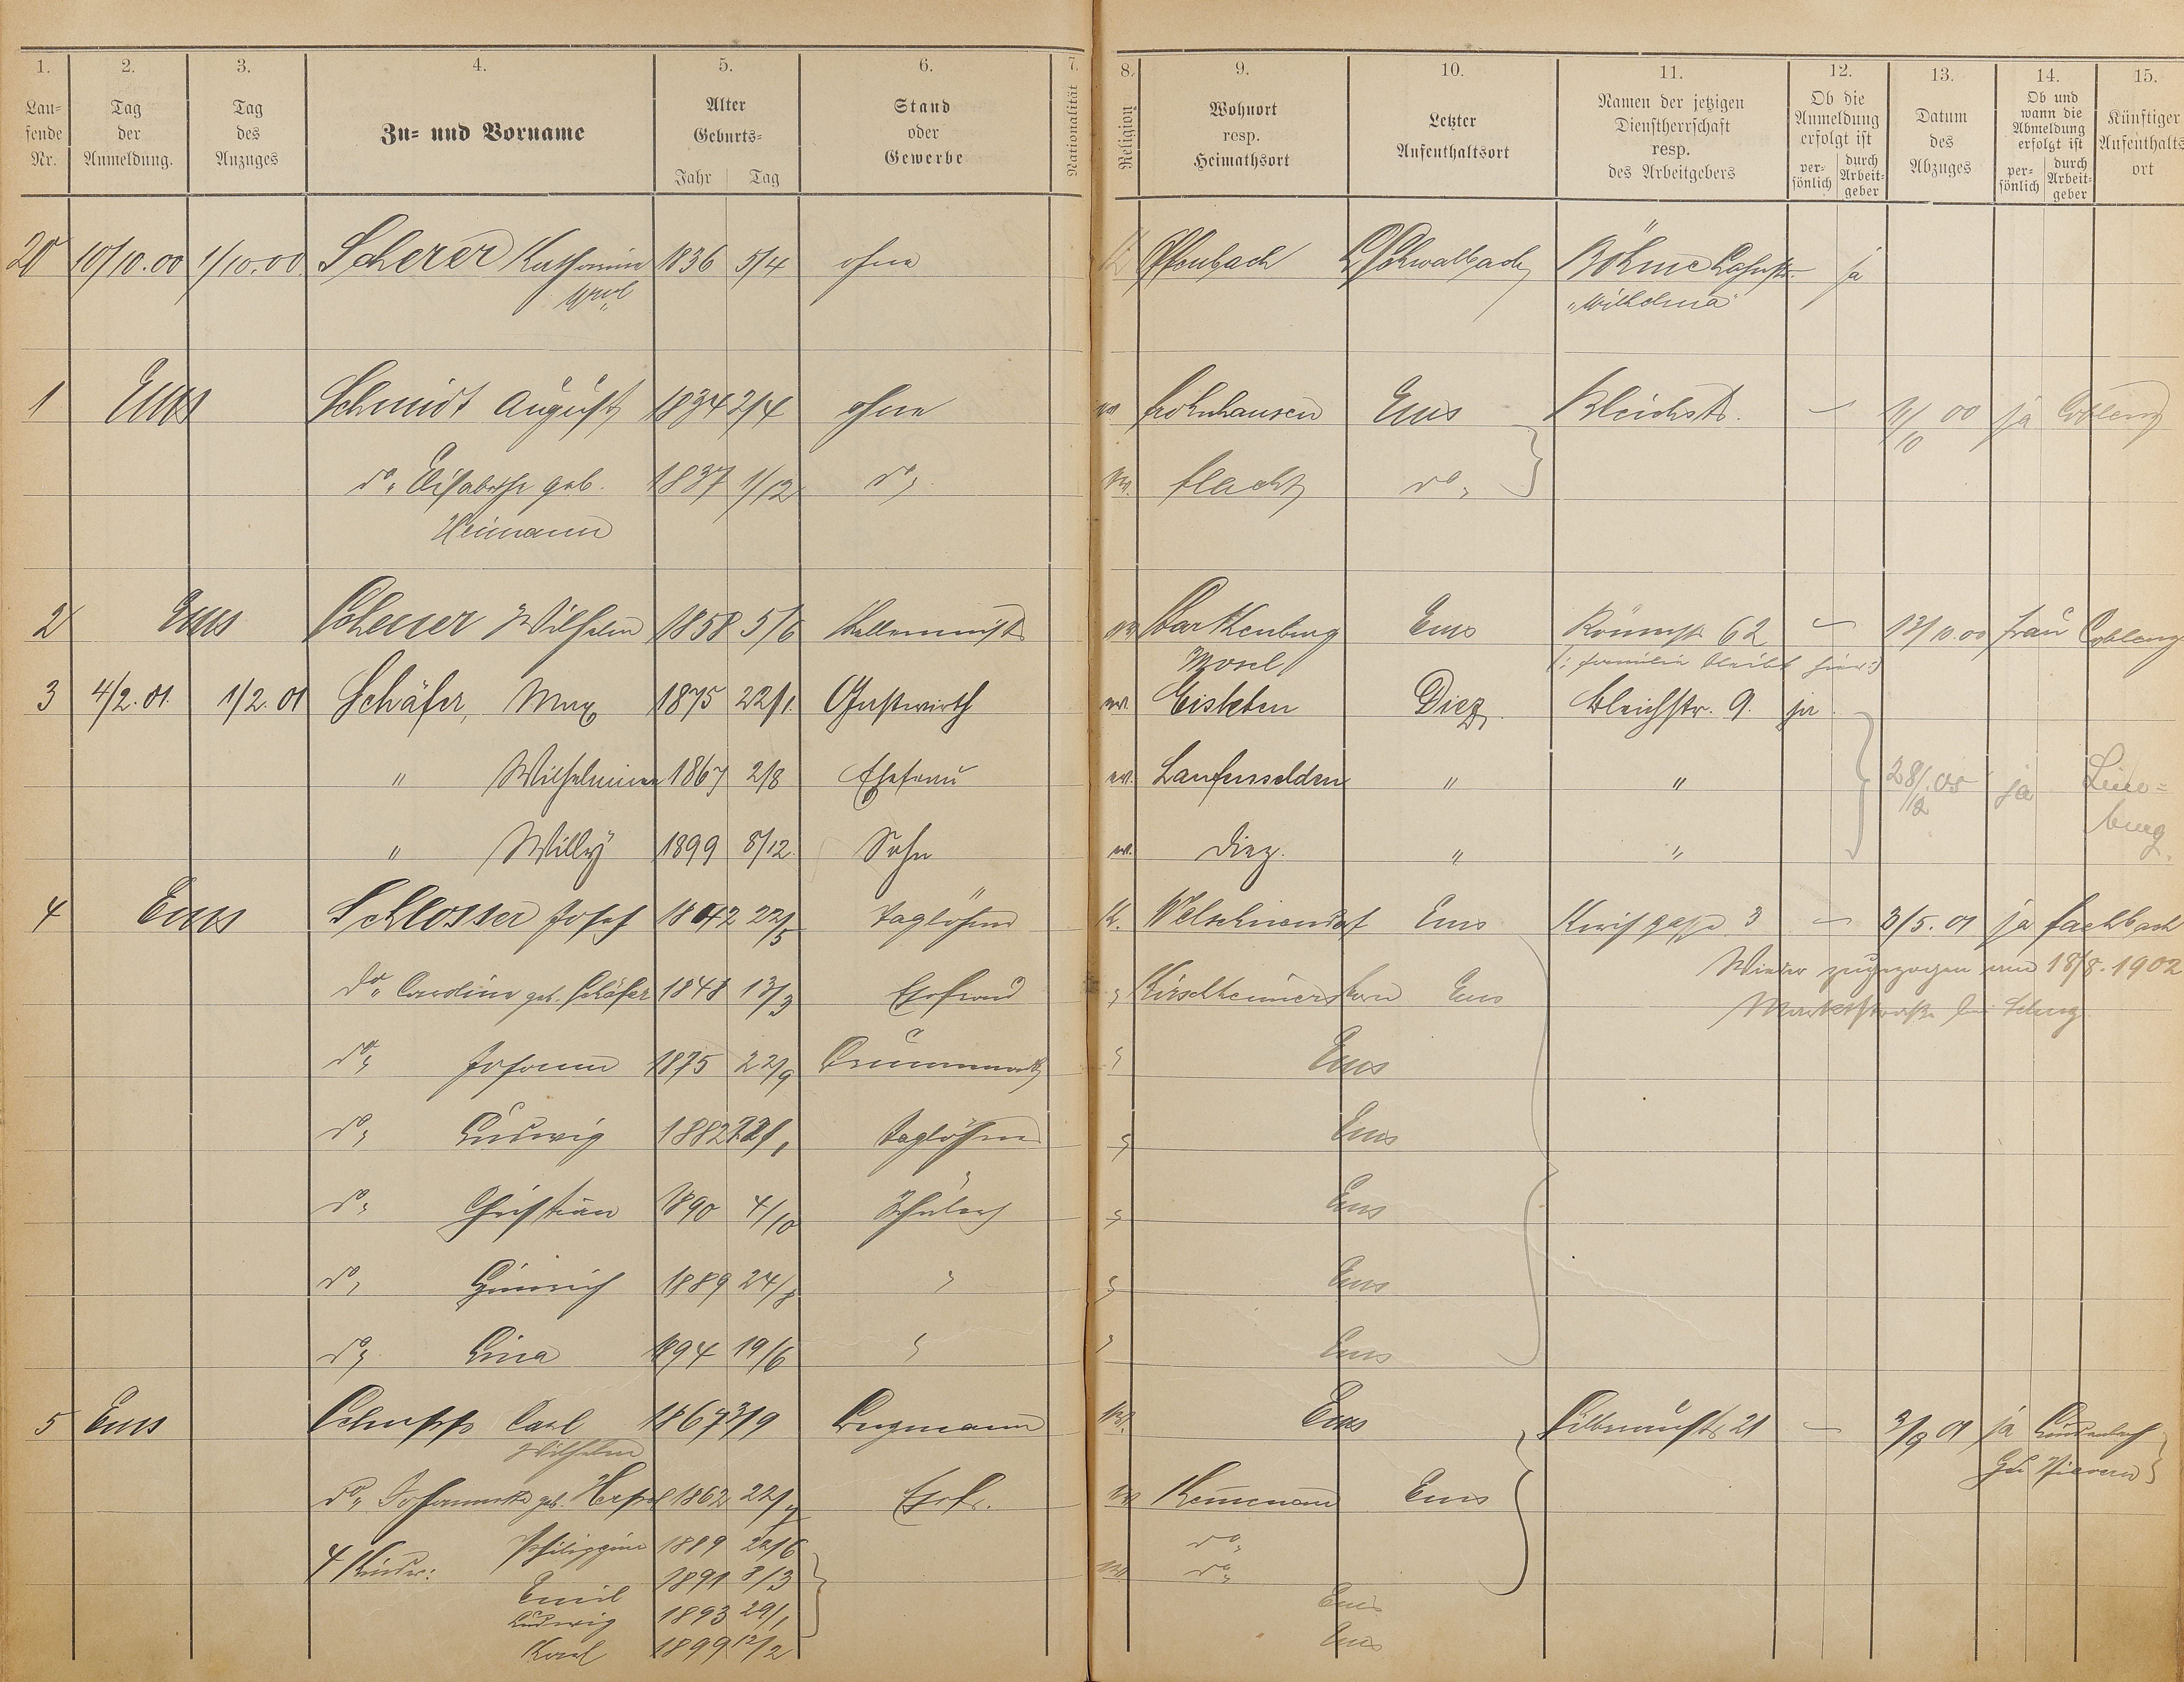 1. 2. 3. 4. 5. 6. 7. 8. 9. 10. 11. 12. 13. 14. 15.
Lau-
fende
Nr.
Tag
der
Anmeldung.
Tag
des
Anzuges
Zu- und Vorname
Alter
Geburts-
Jahr Tag
Stand
oder
Gewerbe
Nationalität
Religion
Wohnort
resp.
Heimathsort
Letzter
Aufenthaltsort
Namen der jetzigen
Dienstherrschaft
resp.
des Arbeitgebers
Ob die
Anmeldung
erfolgt ist
per-
sönlich
durch
Arbeit-
geber
Datum
des
Abzuges
Ob und
wann die
Abmeldung
erfolgt ist
per-
sönlich
durch
Arbeit-
geber
Künftiger
Aufenthalts
ort
20 10/10.00 1/10.00 Scherer Katharina 1836 5/4 ohne K. L/Schwalbach Böhme Lahnstr. ja
"Wilhelma"
1 Ems Schmidt August 1834 2/4 ohne ev Frohnhausen Ems Bleichstr. – 11/10 00 ja Coblenz
do. Elisabethe geb. 1837 1/12 do. ev. Flacht do.
Heimann
2 Ems Scheuer Wilhelm 1858 5/6 ev Ems Römerstr 62 – 13/10.00 Frau Coblenz
Mosel (: Familie bleibt hier :)
3 4/2.01. 1/2.01 Schäfer, Max 1875 22/1. Gastwirth ev. Eisleben Diez. Bleichstr. 9. ja
" Wilhelmine 1867 2/8 Ehefrau ev. Laufenselden " " 28/12.05 ja Lim-
burg.
" Willy 1899 8/12. Sohn ev. Diez. " "
4 Ems Schlosser Josef 1842 22/5 Taglöhner K. Welschneudorf Ems Kirchgasse 3 – 3/5.01 ja Fachbach
Wieder zugezogen am 18/8.1902
do. Caroline geb. Schäfer 1848 13/3 Ehefrau " Ems
Marktstraße bei
do. Johann 1875 22/9 " Ems
do. Ludwig 1882 22/1 Taglöhner " Ems
do. Christian 1890 4/10 Schüler " Ems
do. Heinrich 1889 24/8 " " Ems
do. Lina 1894 19/6 " " Ems
5 Ems Schupp Carl 1867 3/9 Bergmann ev. Ems Silberaustr. 21 – 3/9 01 ja
Wilhelm
do. Johannette geb. 1862 22/7 Ehefr. ev Kemmenau Ems
4 Kinder: Philippine 1889 22/6 do.
Emil 1891 8/3 ev. do.
Ludwig 1893 29/1 Ems
Karl 1899 12/2 Ems